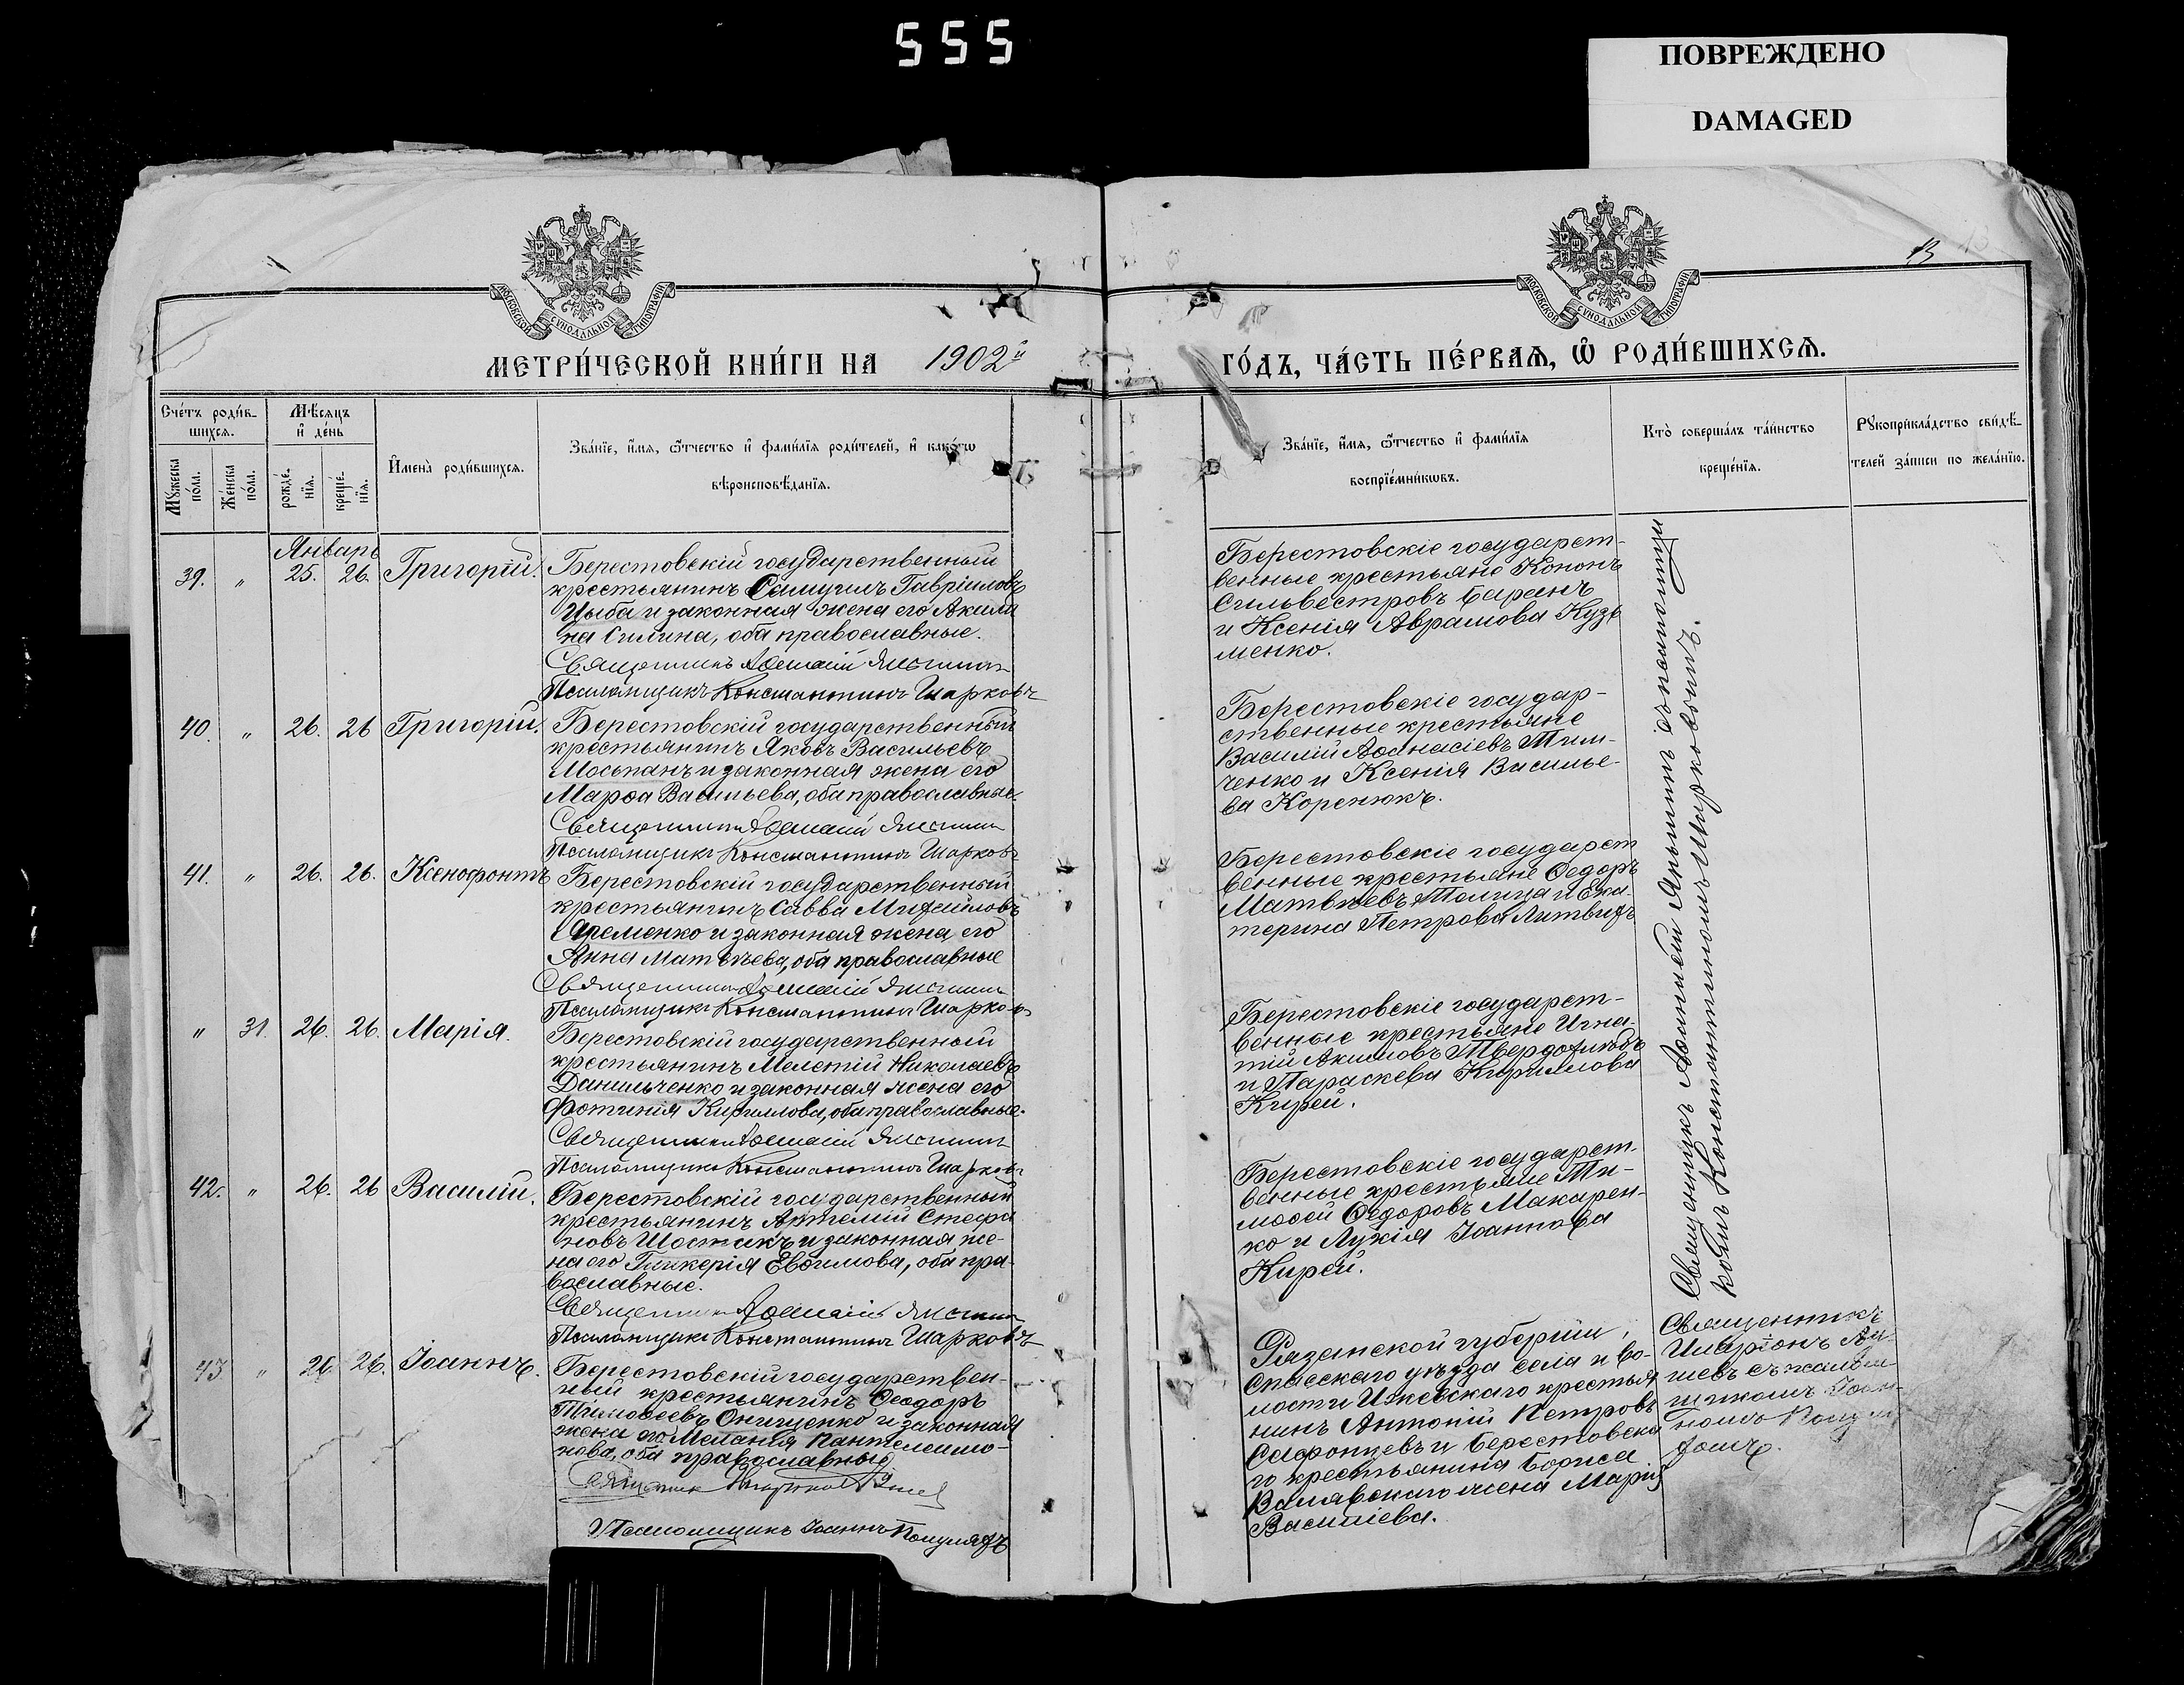 555
ПОВРЕЖДЕНО
DAMAGED
13
МОСКОВСКОЙ СѴНОДАЛЬНОЙ ТИПОГРАФІИ
МОСКОВСКОЙ СѴНОДАЛЬНОЙ ТИПОГРАФІИ
МЕТРИ́ЧЕСКОЙ КНИ́ГИ НА 1902й
ГО́ДЪ, ЧА́СТЬ ПЕ́РВАѦ, Ѡ҆ РОДИ́ВШИХСѦ.
Сче́тъ роди́в-
шихсѧ.
Мꙋ́жеска по́ла.
Же́нска по́ла.
Мѣ́сѧцъ
и҆ де́нь
рожде́-
нїѧ.
креще́-
нїѧ.
И҆мена̀ роди́вшихсѧ.
Зва́нїе, и҆́мѧ, ѻ҆́тчество и҆ фами́лїѧ роди́телей, и҆ како́гѡ
вѣроисповѣ́данїѧ.
Зва́нїе, и҆́мѧ, ѻ҆́тчество и҆ фами́лїѧ
воспрїе́мникѡвъ.
Кто̀ соверша́лъ та́инство
креще́нїѧ.
Рꙋкоприкла́дство свидѣ́-
телей за́писи по жела́нїю.
Январь
39. " 25. 26. Григорій.
Берестовскій государственный
крестьянинъ Самуилъ Гавріиловъ
Цыба и законная жена его Акили
на Силина, оба православные.
Священникъ
Псаломщикъ Константинъ Шарковъ
Берестовскіе государст-
венные крестьяне Кононъ
Сильвестровъ Баранъ
и Ксенія Аврамова Кузь
менко.
40. " 26. 26 Григорій.
Берестовскій государственный
крестьянинъ Яковъ Васильевъ
Моспанъ и законная жена его
Марѳа Васильева, оба православные.
Священникъ
Псаломщикъ Константинъ Шарковъ
Берестовскіе государ-
ственные крестьяне
Василій Аѳанасіевъ Тим-
ченко и Ксенія Василье-
ва Коренюкъ.
41. " 26. 26. Ксенофонтъ
Берестовскій государственный
крестьянинъ Савва Михайловъ
Яременко и законная жена его
Анна Матвѣева, оба православные
Священникъ
Псаломщикъ Константинъ Шарковъ
Берестовскіе государст
венные крестьяне Ѳедоръ
Матвѣевъ и Ека-
терина Петрова Литвинъ
" 31. 26. 26. Марія.
Берестовскій государственный
крестьянинъ Мелетій Николаевъ
Данильченко и законная жена его
Фотинія Кириллова, оба православные.
Священникъ
Псаломщикъ Константинъ Шарковъ
Берестовскіе государст-
венные крестьяне Игна-
тій Акимовъ Твердохлѣбъ
и Параскева Кириллова
Кирей.
42. " 26. 26 Василій.
Берестовскій государственный
крестьянинъ Артемій Стефа
новъ Шостакъ и законная же-
на его Гликерія Евѳимова, оба пра-
вославные.
Священникъ
Псаломщикъ Константинъ Шарковъ
Берестовскіе государст-
венные крестьяне Ти-
моѳей Ѳедоровъ Макарен-
ко и Лукія Іоаннова
Кирей.
Священникъ съ псаломщи
комъ Константиномъ Шарковымъ.
43 " 26 26. Іоаннъ.
Берестовскій государствен-
ный крестьянинъ Ѳеодоръ
Тимоѳеевъ Онищенко и законная
жена его Меланія Пантелеимо-
нова, оба православные
Священник
Псаломщикъ Іоаннъ
Рязанской губерніи,
Спасскаго уѣзда села и во-
лости Ижевскаго крестья
нинъ Антоній Петровъ
Сафонцевъ и Берестовска
го крестьянина Бориса
жена Марія
Василіева.
Священникъ
Иларіонъ
съ псалом-
щикомъ Іоан-
номъ